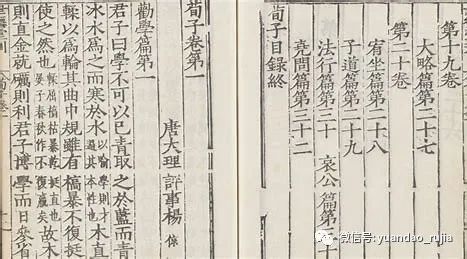 第十九卷
大略篇第二十七
第二十卷
宥坐篇第二十八
子道篇第二十九
法行篇第三十 哀公篇第三十
堯問篇第三十二
荀子目錄終
荀子卷第一
唐大理評事楊 倞
勸學篇第一
君子曰學不可以已青取之於藍而青
冰水爲之而寒於水以喻學則才過其本性也木直
輮以爲輪其曲中規雖有槁暴不復挺
使之然也輮屈槁枯暴乾挺直也晏子春秋作不復贏矣故木
則直金就礪則利君子博學而日參省
微信号: yuandao_rujia